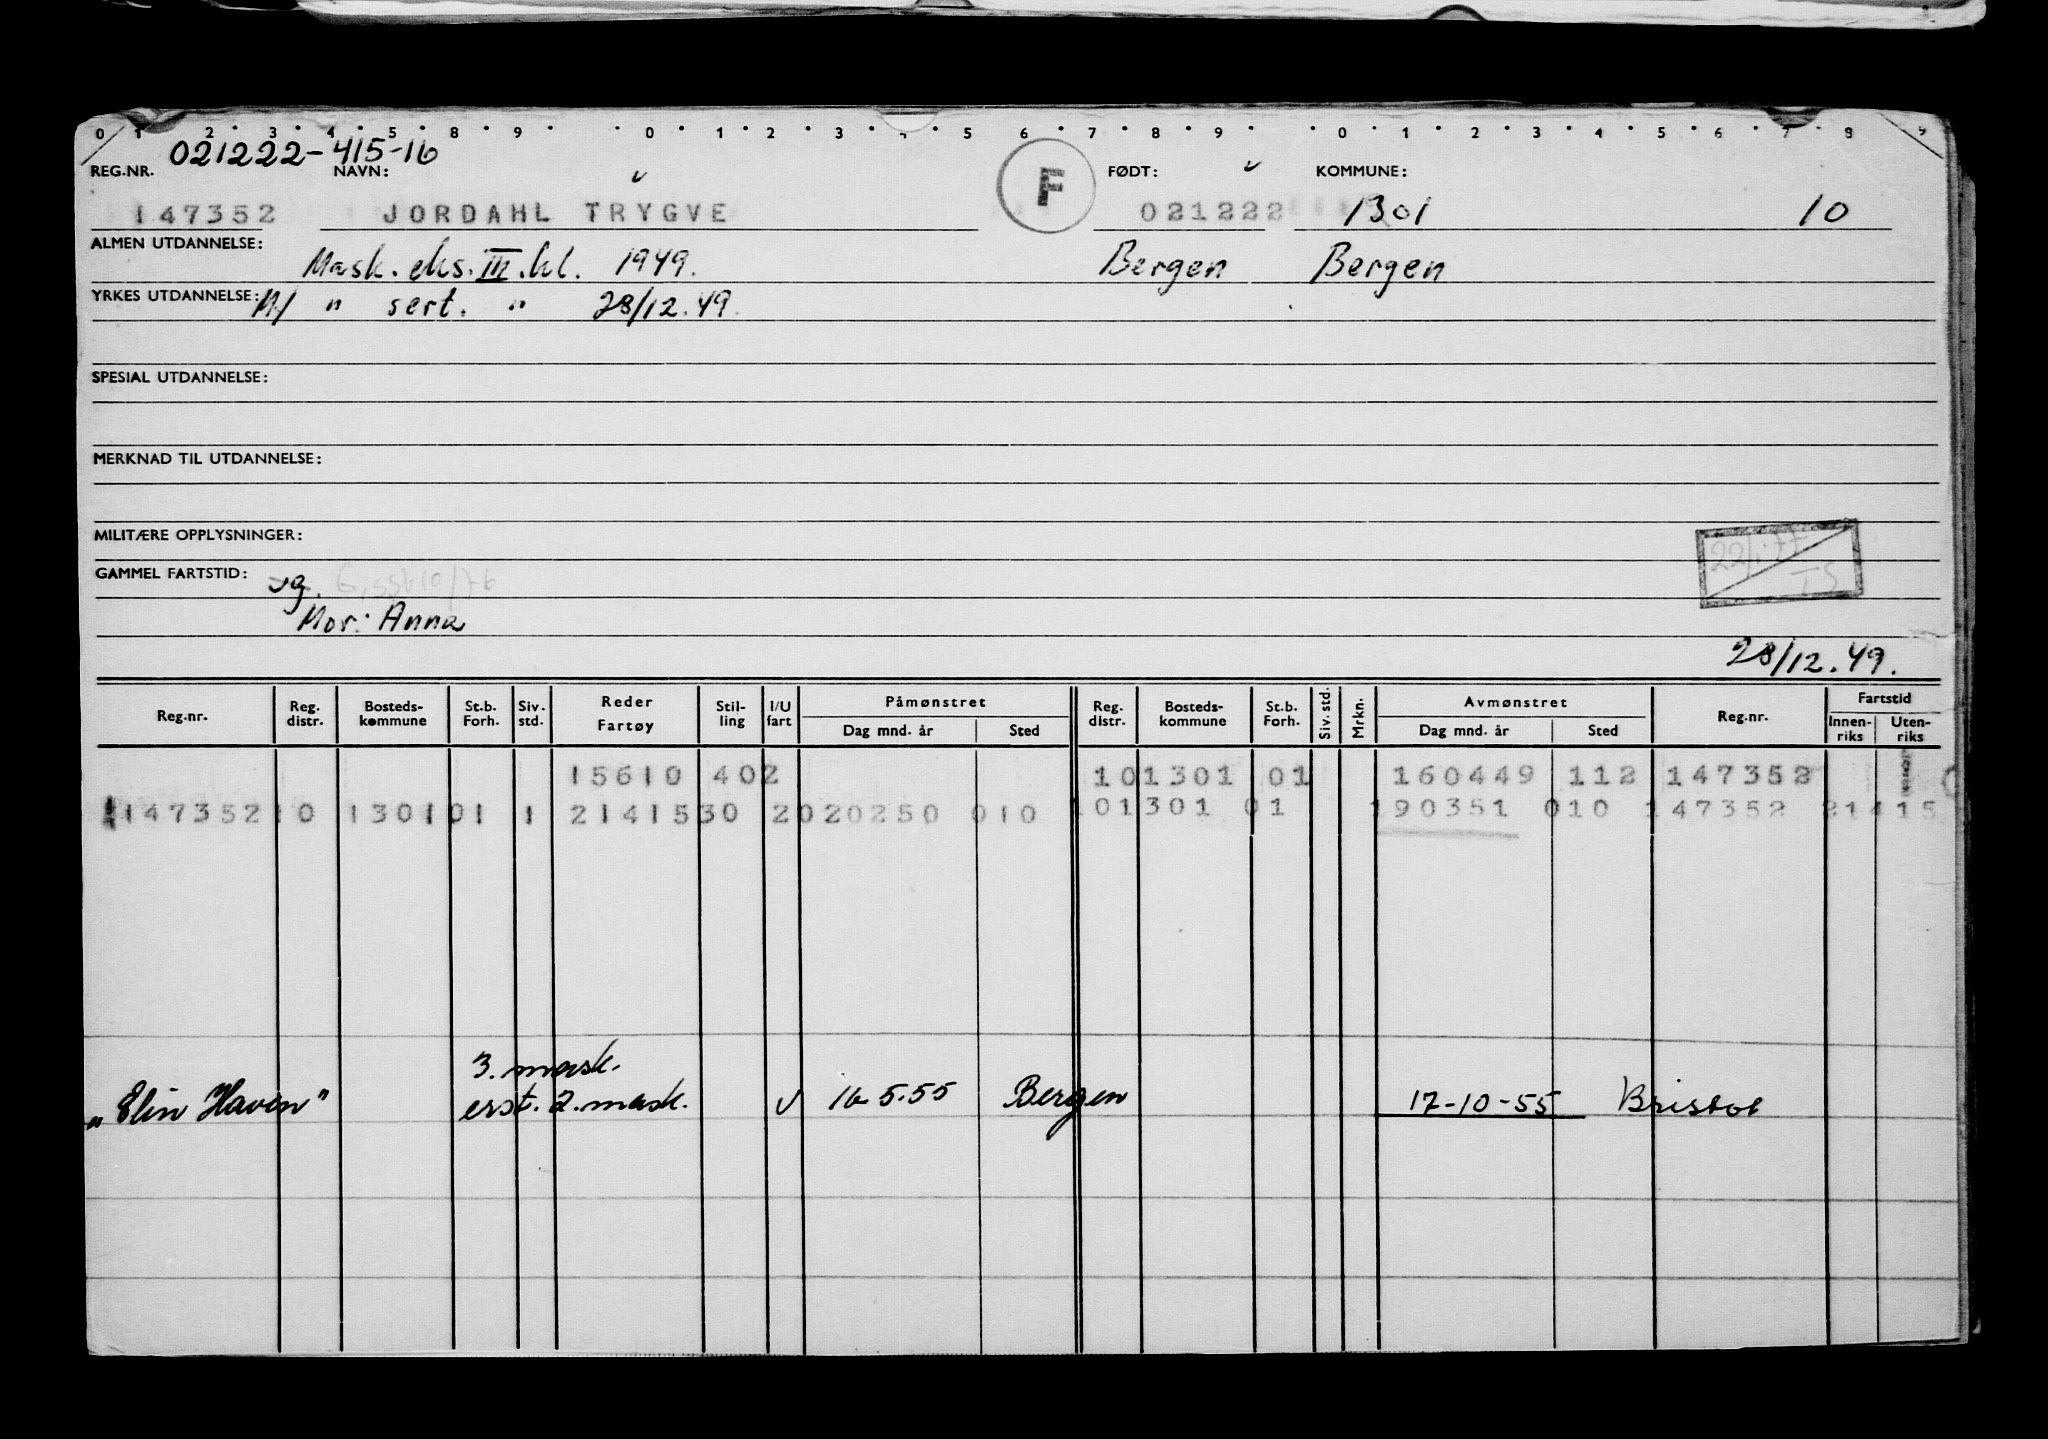 0 1 2 3 4 5 8 9 0 1 2 3 4 5 6 7 8 9 0 1 2 3 4 5 6 7 8 9
021222-415-16
REG.NR. NAVN: FØDT: KOMMUNE:
147352 JORDAHL TRYGVE F 021222 1301 10
ALMEN UTDANNELSE: Mask. eks. III. kl. 1949. Bergen Bergen
YRKES UTDANNELSE: M/ " sert. " 28/12.49.
SPESIAL UTDANNELSE:
MERKNAD TIL UTDANNELSE:
MILITÆRE OPPLYSNINGER:
GAMMEL FARTSTID:
Mor: Anna
28/12.49.
Reg.nr. Reg. distr. Bosteds-kommune St.b. Forh. Siv. std. Reder Fartøy Stil-ling I/U fart Påmønstret Dag mnd. år Sted Reg. distr. Bosteds-kommune St.b. Forh. Siv. std. Mrkn. Avmønstret Dag mnd. år Sted Reg.nr. Fartstid Innen-riks Uten-riks
15610 402 101301 01 160449 112 147352
147352 10 1301 01 1 21415 30 2 020250 010 101301 01 190351 010 147352 21415
3. mask.
"Elin Haven" erst. 2. mask. v 16-5.55 Bergen 17-10-55 Bristol